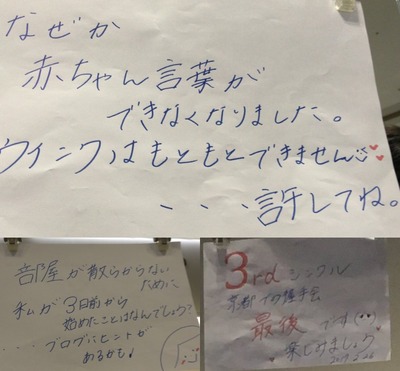 なぜか
赤ちゃん言葉が
できなくなりました。
ウインクはもともとできません
・・・許してね。
部屋が散らからない
ために
私が3日前から
始めたことはなんでしょう?
・・・・ブログにヒントが
あるかも♪
3rdシングル
京都での握手会
最後です(^^)
楽しみましょう